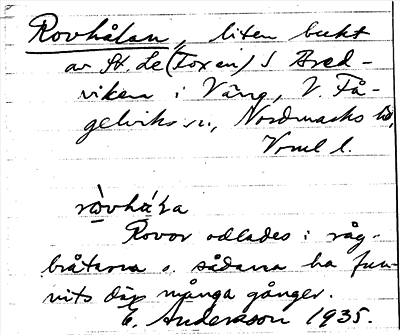 Rovhålan, liten bukt
av St. Le (Foxen) S Bred-
viken i Väng, V. Få-
gelviks sn, Nordmarks hd,
Vrml l.
ròvhá̱ḷa
Rovor odlades i råg-
bråtarna o. sådana ha fun-
nits där många gånger.
E. Andersson 1935.